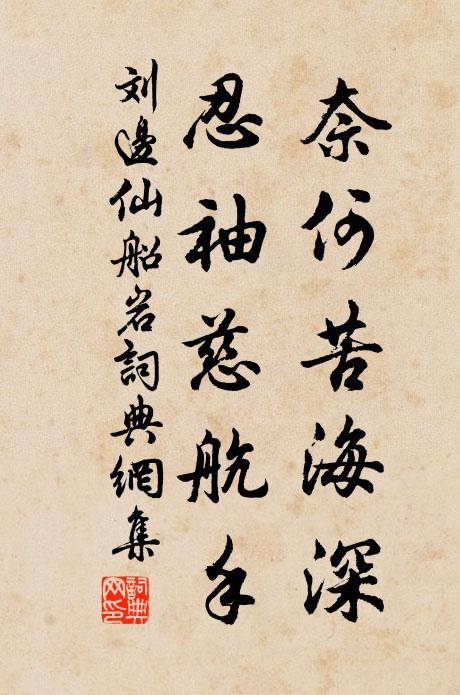 奈何苦海深
忍袖慈航手
刘邊仙船岩詞典網集
詞典
网印